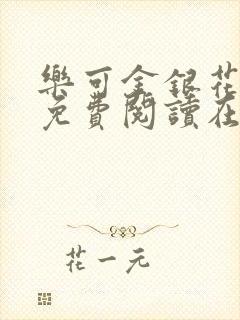 樂可金銀花
免費閱讀在
花一元